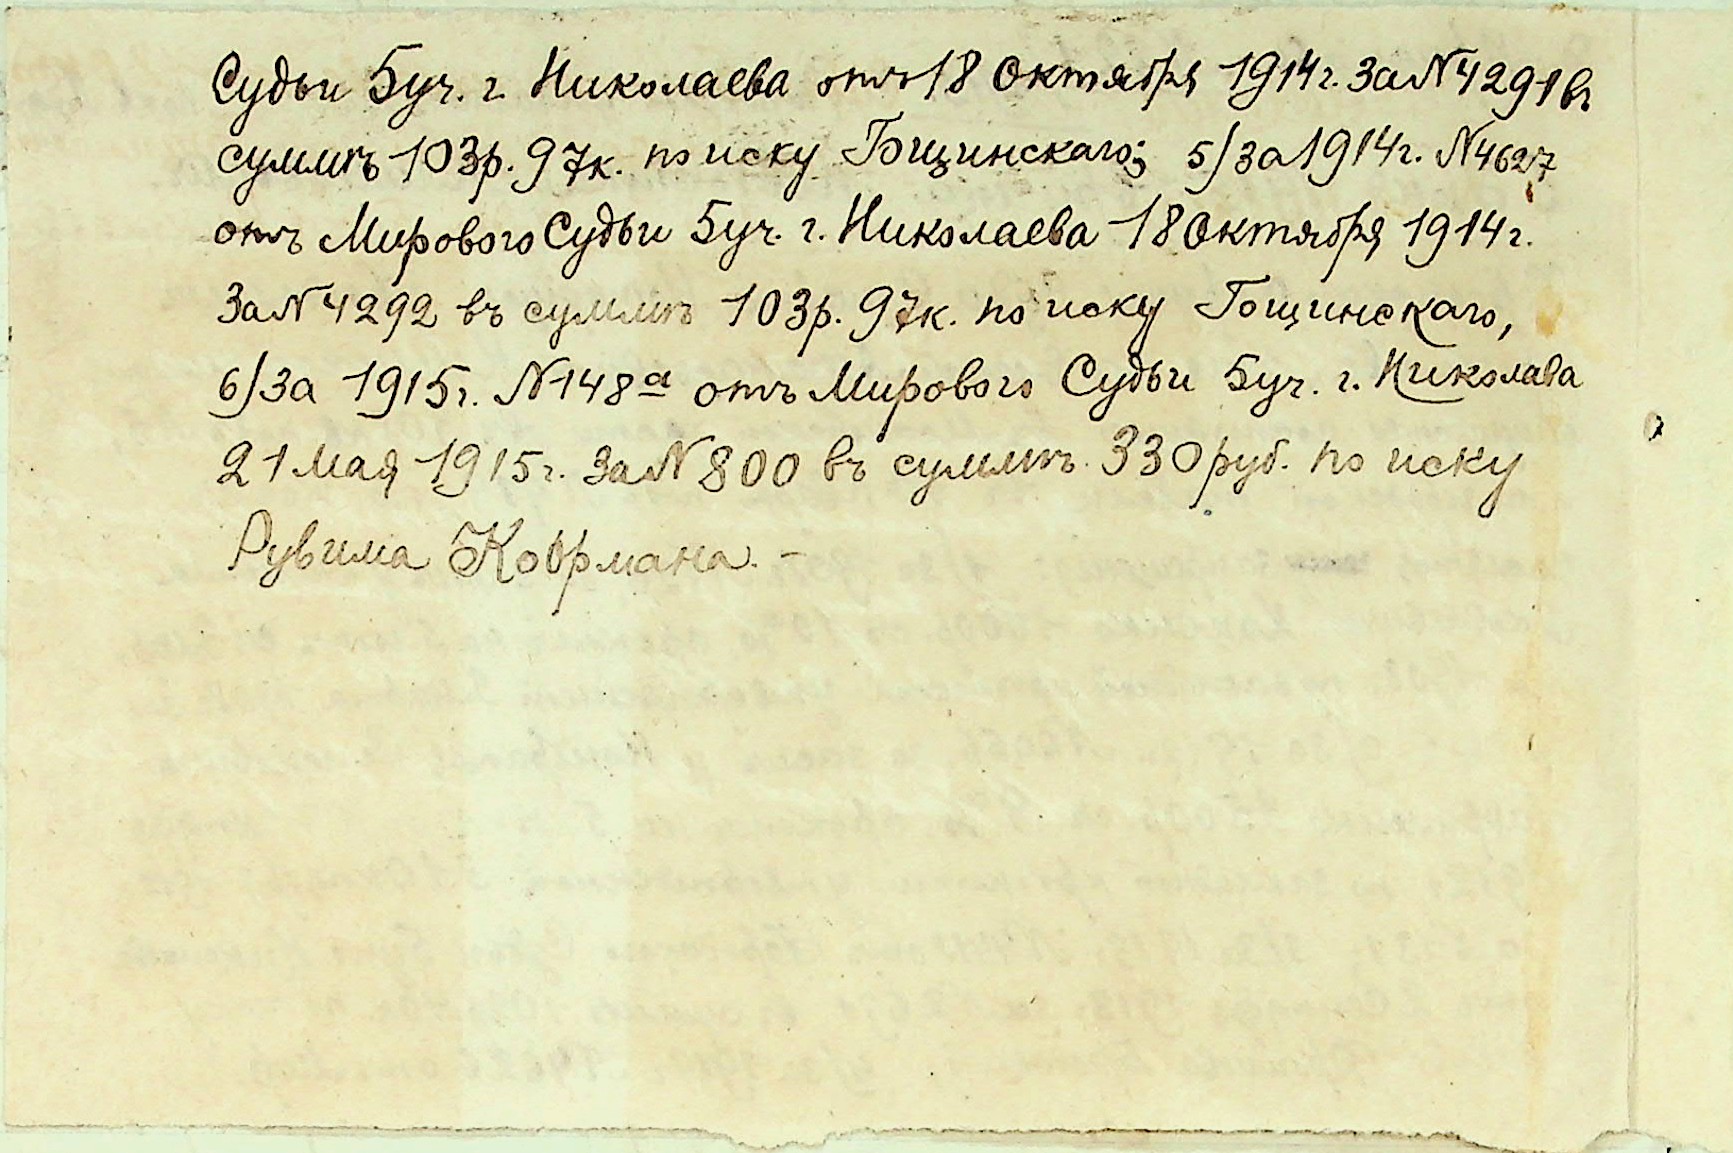 Судьи 5 уч. г. Николаева отъ 18 Октября 1914 г. За № 4291 въ
суммѣ 103 р. 97 к. по иску Гощинскаго; 5/ за 1914 г. № 4627
отъ Мирового Судьи 5 уч. г. Николаева 18 Октября 1914 г.
За № 4292 въ суммѣ 103 р. 97 к. по иску Гощинскаго,
6/ За 1915 г. № 148а отъ Мирового Судьи 5 уч. г. Николава
21 Мая 1915 г. за № 800 въ суммѣ 330 руб. по иску
Рувима Коврмана. –